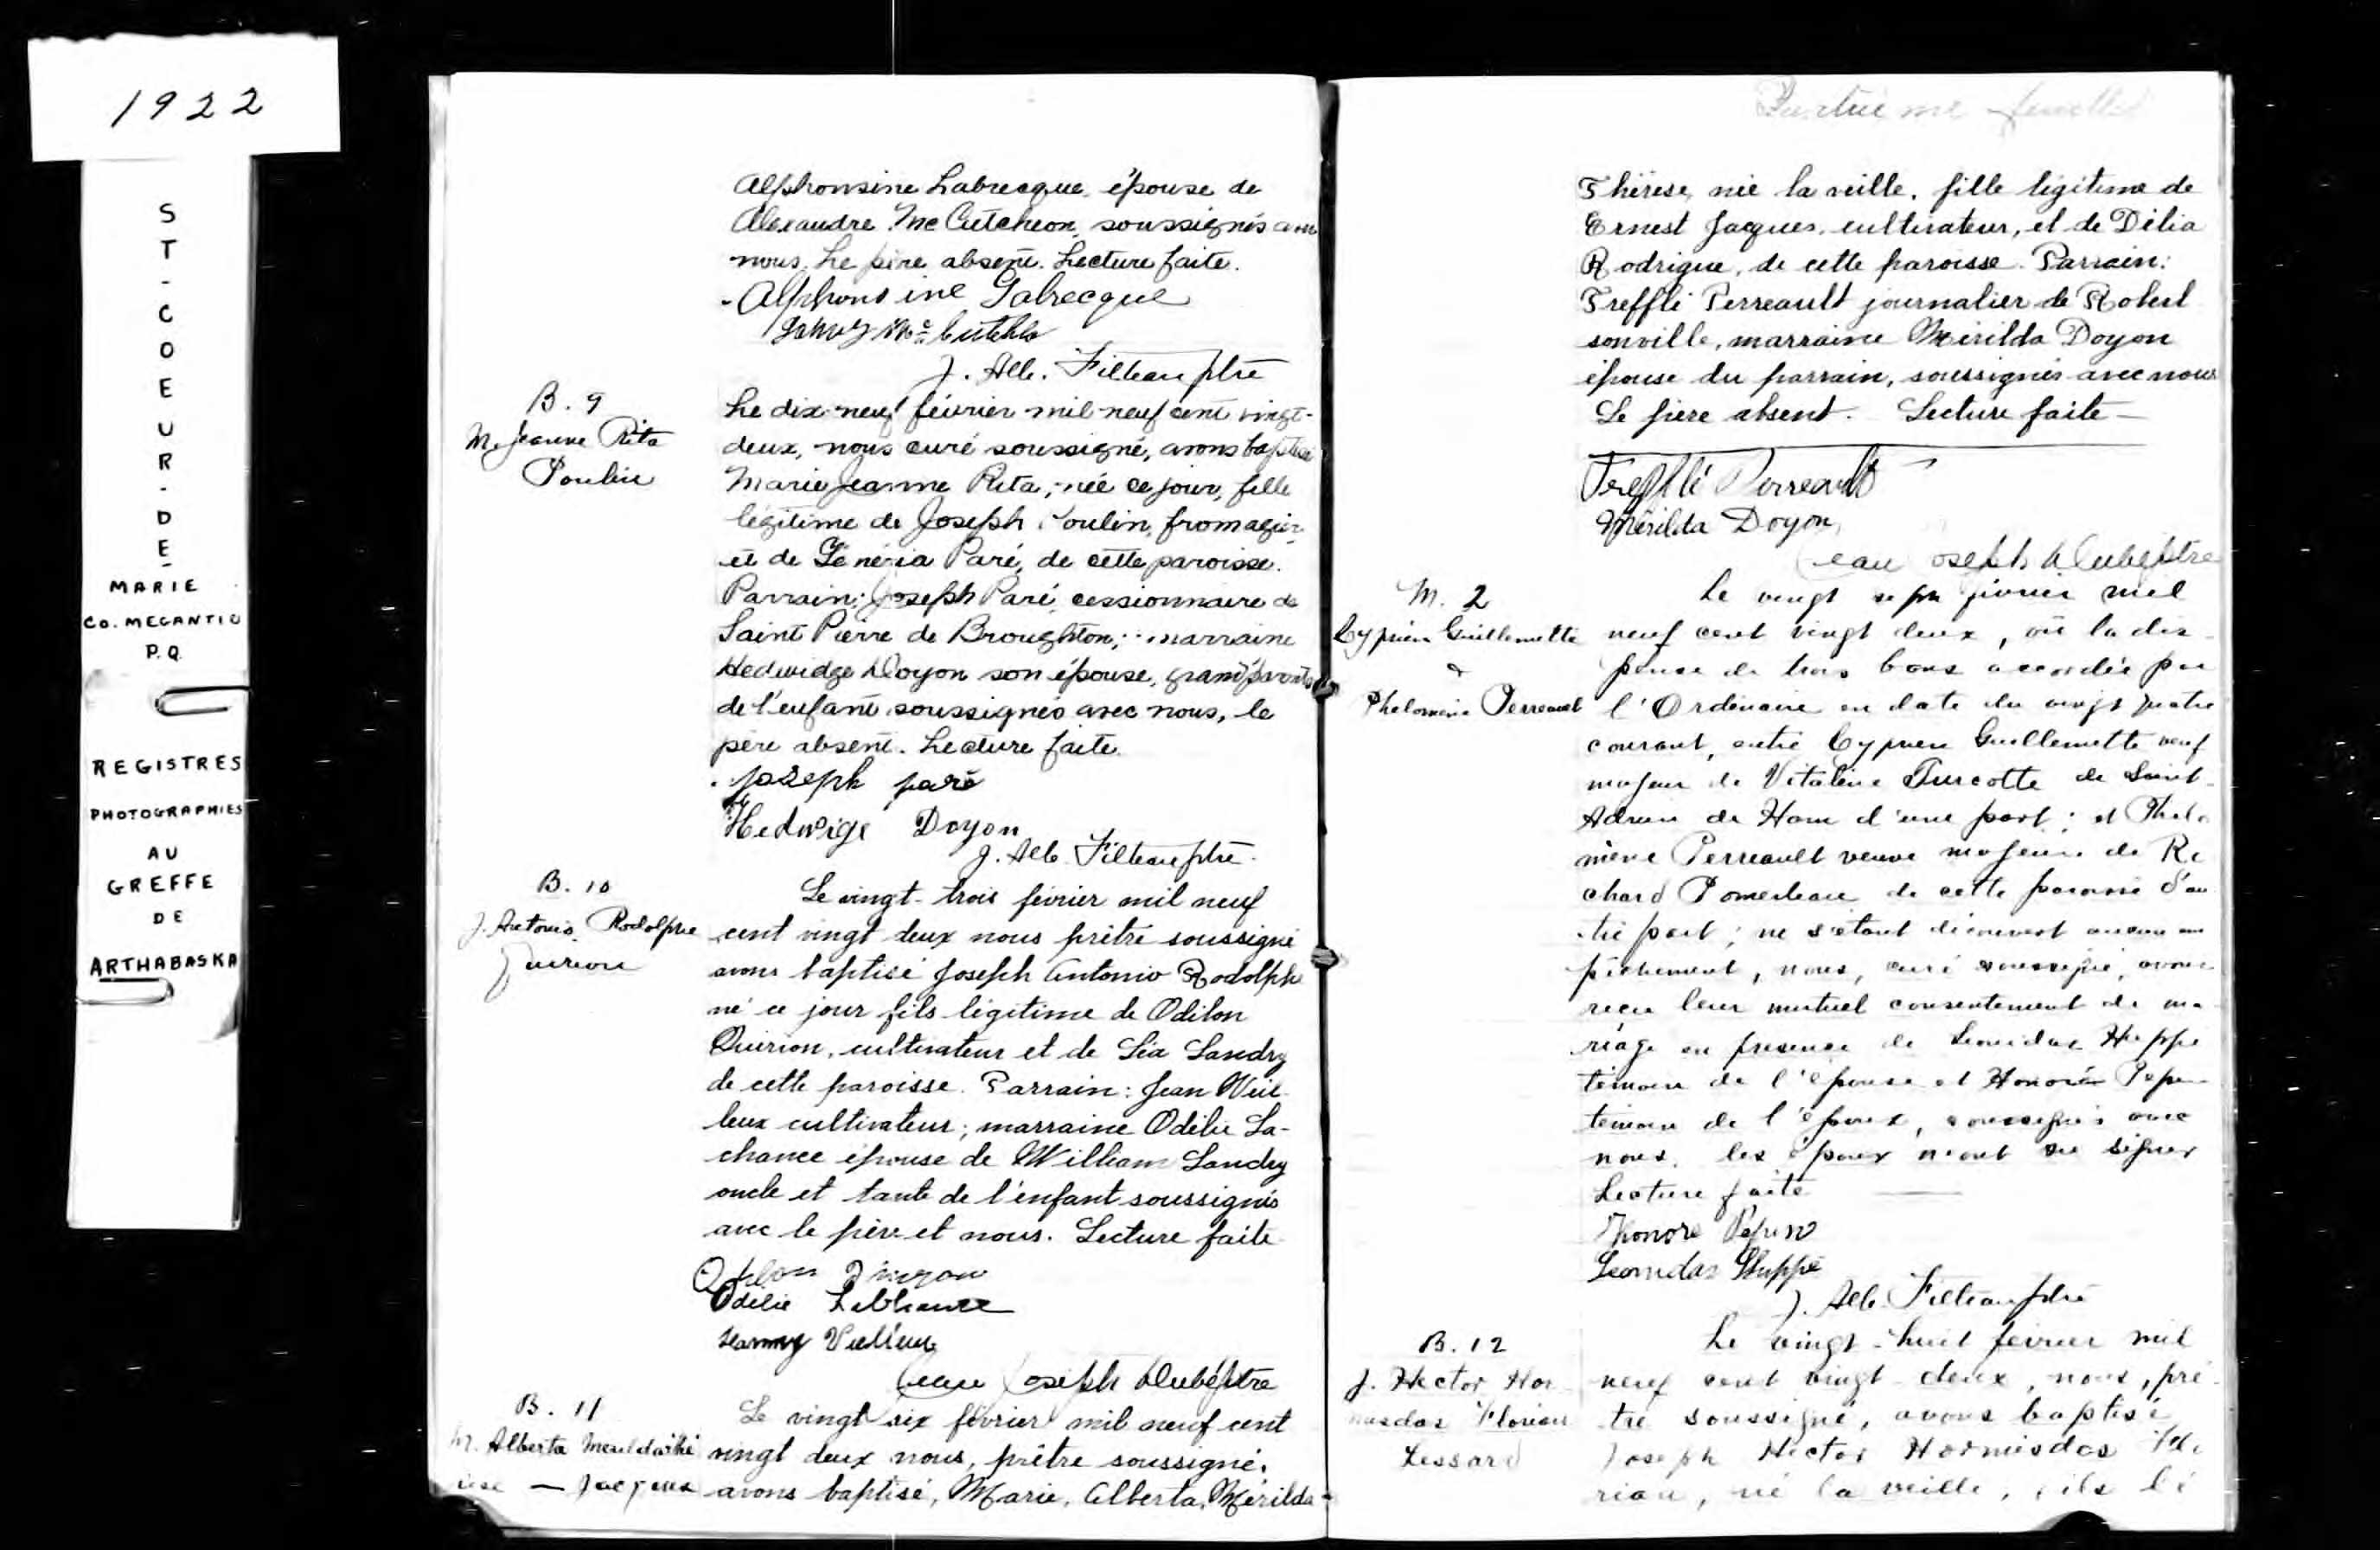 1922
ST-COEUR-DE
MARIE
CO. MEGANTIC
P.Q.
REGISTRES
PHOTOGRAPHIES
AU
GREFFE
DE
ARTHABASKA
Alphonsine Labrecque, épouse de
Alexandre Mc Cutcheon, soussignés avec
nous. Le père absent. Lecture faite.
Alphonsine Labrecque
J. Alb. Filteau ptre
B. 9
M. Jeanne Rita
Poulin
Le dix-neuf février mil neuf cent vingt-
deux, nous curé soussigné, avons baptisé
Marie Jeanne Rita, née ce jour, fille
légitime de Joseph Poulin, fromagier
et de Généria Paré, de cette paroisse.
Parrain: Joseph Paré, cessionnaire de
Saint Pierre de Broughton; marraine
Hedwidge Doyon son épouse, grand'parents
de l'enfant soussignés avec nous, le
père absent. Lecture faite.
Joseph paré
Hedwige Doyon
J. Alb. Filteau ptre.
B. 10
J. Antonio Rodolphe
Quirion
Le vingt-trois février mil neuf
cent vingt deux nous prêtre soussigné
avons baptisé Joseph Antonio Rodolphe
né ce jour fils légitime de Odilon
Quirion, cultivateur et de Léa Landry
de cette paroisse. Parrain: Jean Veil-
leux cultivateur; marraine Odélie La-
chance épouse de William Landry
oncle et tante de l'enfant soussignés
avec le père et nous. Lecture faite
Odilon Quirion
Odélie Lachance
Jean Joseph Dubé ptre
B. 11
M. Alberta
— Jacques
Le vingt six février mil neuf cent
vingt deux nous, prêtre soussigné,
avons baptisé, Marie, Alberta, Mérilda-
feuillet
Thérèse, née la veille, fille légitime de
Ernest Jacques, cultivateur, et de Délia
Rodrigue, de cette paroisse. Parrain:
Trefflé Perreault journalier de Robert
sonville, marraine Mérilda Doyon
épouse du parrain, soussignés avec nous
Le père absent. Lecture faite —
Trefflé Perreault
Mérilda Doyon
Jean Joseph Dubé ptre
M. 2
Cyprien Guillemette
&
Phelomène Perreault
Le vingt sept février mil
neuf cent vingt deux, vu la dis-
pense de trois bans accordée par
l'Ordinaire en date du vingt quatre
courant, entre Cyprien Guillemette veuf
majeur de Vitaline Turcotte de Saint-
Adrien de Ham d'une part; et Phelo
mène Perreault veuve majeure de Ri
chard Pomerleau de cette paroisse d'au
tre part; ne s'étant découvert aucun em
pêchement, nous, curé soussigné, avons
reçu leur mutuel consentement de ma-
riage en présence de Léonidas Huppé
témoin de l'épouse et Honoré Pepin
témoin de l'époux, soussignés avec
nous. les époux n'ont su signer
Lecture faite —
Honoré Pepin
Leonidas Huppé
J. Alb. Filteau ptre
B. 12
J. Hector Hor
misdas Florian
Lessard
Le vingt-huit février mil
neuf cent vingt deux, nous, prê-
tre soussigné, avons baptisé
Joseph Hector Hormisdas Flo
rian, né la veille, fils lé